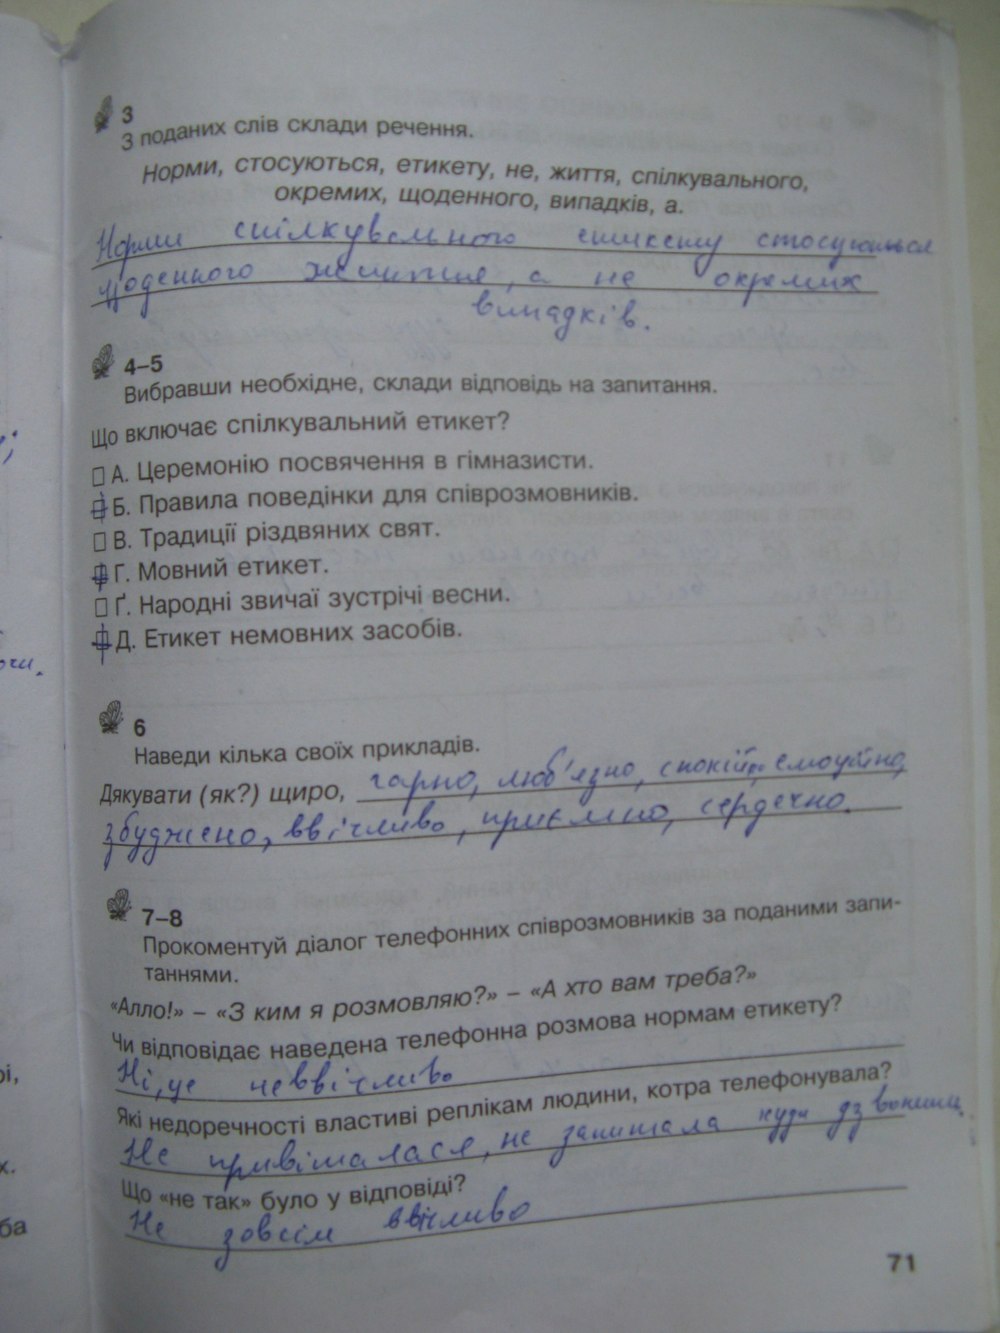 3
З поданих слів склади речення.
Норми, стосуються, етикету, не, життя, спілкувального,
окремих, щоденного, випадків, а.
Норми спілкувального етикету стосуються
щоденного життя, а не окремих
випадків.
4–5
Вибравши необхідне, склади відповідь на запитання.
Що включає спілкувальний етикет?
А. Церемонію посвячення в гімназисти.
Б. Правила поведінки для співрозмовників.
В. Традиції різдвяних свят.
Г. Мовний етикет.
Ґ. Народні звичаї зустрічі весни.
Д. Етикет немовних засобів.
6
Наведи кілька своїх прикладів.
Дякувати (як?) щиро, гарно, люб'язно, спокійно, емоційно,
збуджено, ввічливо, приємно, сердечно.
7–8
Прокоментуй діалог телефонних співрозмовників за поданими запи-
таннями.
«Алло!» – «З ким я розмовляю?» – «А хто вам треба?»
Чи відповідає наведена телефонна розмова нормам етикету?
Ні, це неввічливо
Які недоречності властиві реплікам людини, котра телефонувала?
Не привіталася, не запитала куди дзвонила.
Що «не так» було у відповіді?
Не зовсім ввічливо
71